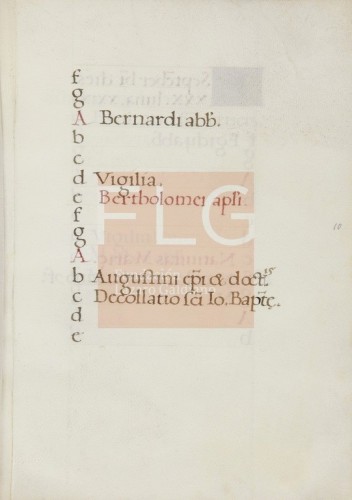 f
g
A Bernardi abb̄.
b
c
d Vigilia.
e Bertholomei apl̄i
f
g
A
b Augustini ep̄i & doct.is
c Decollatio sc̄i Io. Bapt̄ę.
d
e
FLG